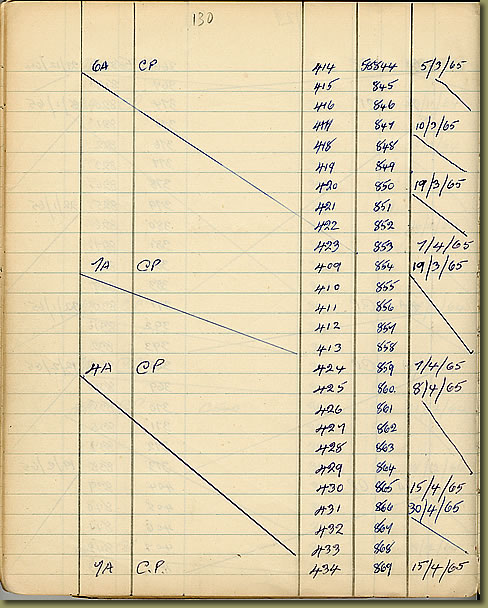 130
6A CP 414 58844 5/3/65
415 845
416 846
417 847 10/3/65
418 848
419 849
420 850 19/3/65
421 851
422 852
423 853 7/4/65
7A CP 409 854 19/3/65
410 855
411 856
412 857
413 858
4A CP 424 859 7/4/65
425 860 8/4/65
426 861
427 862
428 863
429 864
430 865 15/4/65
431 866 30/4/65
432 867
433 868
7A C.P. 434 869 15/4/65